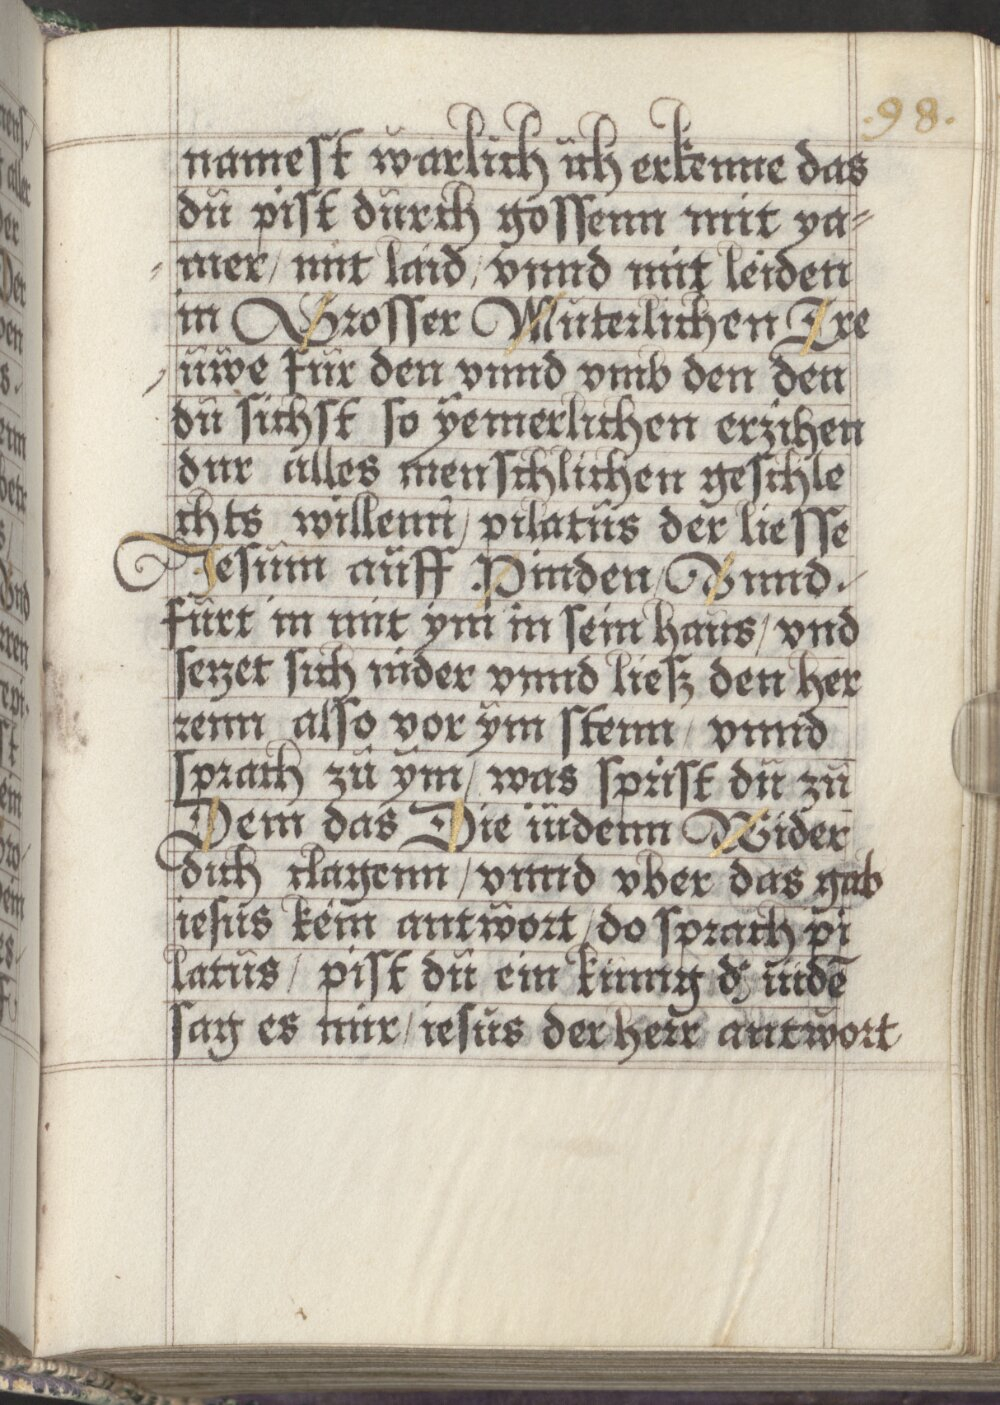 .98.
namest warlich ich erkenne das
dü pist dürch gossenn mit ya⸗
mer / mit laid / vnnd mit leiden
in Grosser Müterlichen Tre
üwe für den vnnd vmb den den
dü sichst so ÿemerlichen erzihen
dur alles menschlichen geschle
chts willenn / pilatüs der liesse
Jesüm aüff Pinden / Vnnd.
fürt in mit ym in sein haüs / vnd
seczet sich nider vnnd liesz den her
renn also vor ÿm stenn / vnnd
sprach zü ÿm / was sprist dü zü
Dem das Die iüdenn Wider
dich clagenn / vnnd vber das gab
iesüs kein antwort / do sprach pi
latüs / pist dü ein künig d' iüdē
sag es mir / iesüs der herr antwort